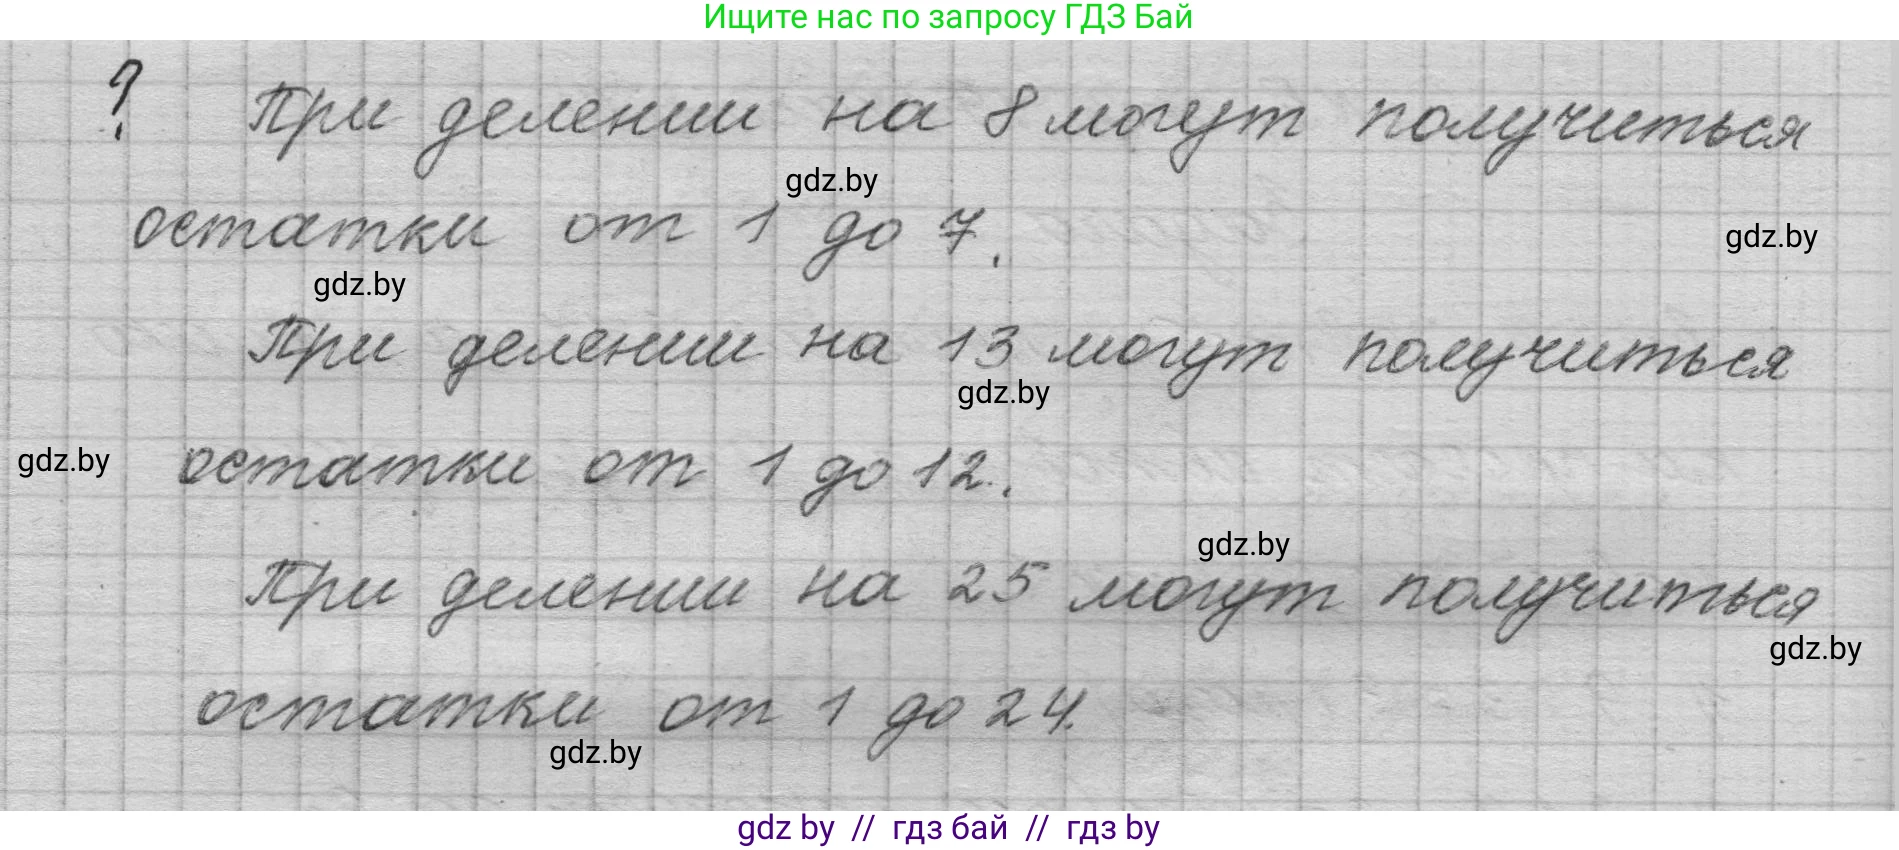 Ищите нас по запросу ГДЗ Бай
? При делении на 8 могут получиться
gdz.by
остатки от 1 до 7.
gdz.by
gdz.by
При делении на 13 могут получиться
gdz.by
gdz.by
остатки от 1 до 12.
gdz.by
При делении на 25 могут получиться
gdz.by
остатки от 1 до 24.
gdz.by
gdz by // гдз бай // гдз by